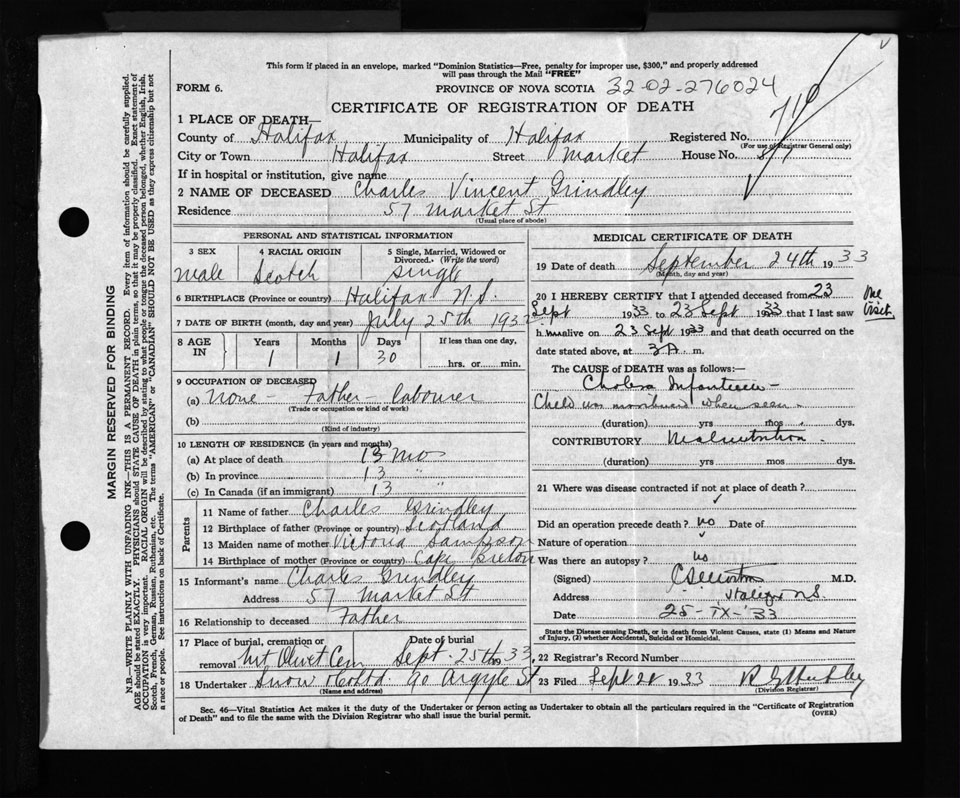 This form if placed in an envelope, marked "Dominion Statistics—Free, penalty for improper use, $300," and properly addressed
will pass through the Mail "FREE"
FORM 6. PROVINCE OF NOVA SCOTIA 32-02-276024
CERTIFICATE OF REGISTRATION OF DEATH
1 PLACE OF DEATH—
County of Halifax Municipality of Halifax Registered No. 710
(For use of Registrar General only)
City or Town Halifax Street Market House No. 57
If in hospital or institution, give name
2 NAME OF DECEASED Charles Vincent Grindley
Residence 57 Market St
(Usual place of abode)
PERSONAL AND STATISTICAL INFORMATION
3 SEX 4 RACIAL ORIGIN 5 Single, Married, Widowed or Divorced. (Write the word)
male Scotch single
6 BIRTHPLACE (Province or country) Halifax N.S.
7 DATE OF BIRTH (month, day and year) July 25th 1932
8 AGE IN Years Months Days If less than one day,
1 1 30 hrs. or min.
9 OCCUPATION OF DECEASED
(a) None - Father - labourer
(Trade or occupation or kind of work)
(b)
(Kind of industry)
10 LENGTH OF RESIDENCE (in years and months)
(a) At place of death 13 mo
(b) In province 13 "
(c) In Canada (if an immigrant) 13 "
Parents
11 Name of father Charles Grindley
12 Birthplace of father (Province or country) Scotland
13 Maiden name of mother Victoria Sampson
14 Birthplace of mother (Province or country) Cape Breton
15 Informant's name Charles Grindley
Address 57 Market St
16 Relationship to deceased Father
17 Place of burial, cremation or removal Mt Olivet Cem Date of burial Sept. 25th 1933
18 Undertaker Snow & Co Ltd 90 Argyle St
(Name and address)
MEDICAL CERTIFICATE OF DEATH
19 Date of death September 24th 1933
(Month, day and year)
20 I HEREBY CERTIFY that I attended deceased from 23 One visit.
Sept 1933 to 23 Sept 1933 that I last saw
h im alive on 23 Sept 1933 and that death occurred on
date stated above, at 3 A. m.
The CAUSE OF DEATH was as follows:—
Cholera Infantum -
Child was moribund when seen.
(duration) yrs mos dys.
CONTRIBUTORY Malnutrition.
(duration) yrs mos dys.
21 Where was disease contracted if not at place of death?
Did an operation precede death? no Date of
Nature of operation
Was there an autopsy? no
(Signed) M.D.
Address Halifax N.S.
Date 25-IX-'33
State the Disease causing Death, or in death from Violent Causes, state (1) Means and Nature of Injury, (2) whether Accidental, Suicidal or Homicidal.
22 Registrar's Record Number
23 Filed Sept 1933
(Division Registrar)
Sec. 46—Vital Statistics Act makes it the duty of the Undertaker or person acting as Undertaker to obtain all the particulars required in the "Certificate of Registration
of Death" and to file the same with the Division Registrar who shall issue the burial permit. (OVER)
MARGIN RESERVED FOR BINDING
N.B.—WRITE PLAINLY WITH UNFADING INK—THIS IS A PERMANENT RECORD. Every item of information should be carefully supplied.
AGE should be stated EXACTLY. PHYSICIANS should STATE CAUSE OF DEATH in plain terms, so that it may be properly classified. Exact statement of
OCCUPATION is very important. RACIAL ORIGIN will be described by stating to what people or tongue the deceased person belonged, whether English, Irish,
Scotch, French, German, Russian, Ruthenian, etc. The terms "AMERICAN" or "CANADIAN" SHOULD NOT BE USED as they express citizenship but not
a race or people. See instructions on back of Certificate.